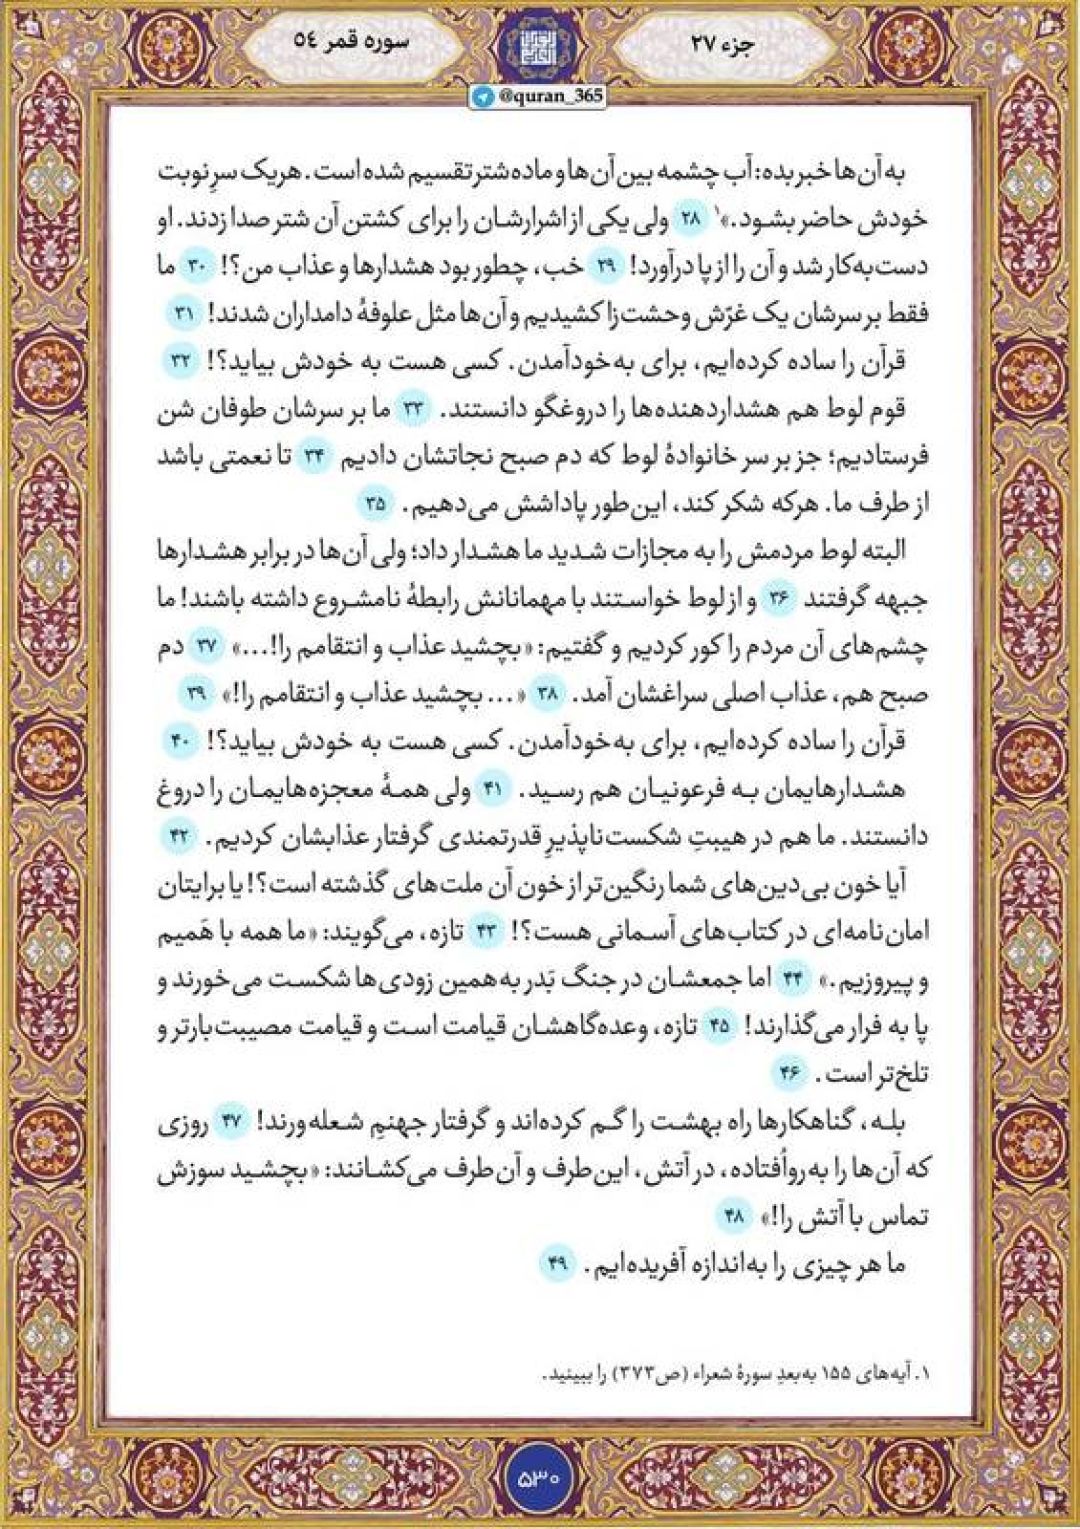 جزء ۲۷
سوره قمر ٥٤
@quran_365
به آن‌ها خبر بده: آب چشمه بین آن‌ها و ماده شتر تقسیم شده است. هریک سرِ نوبت
خودش حاضر بشود.»۱ ۲۸ ولی یکی از اشرارشان را برای کشتن آن شتر صدا زدند. او
دست‌به‌کار شد و آن را از پا درآورد! ۲۹ خب، چطور بود هشدارها و عذاب من؟! ۳۰ ما
فقط بر سرشان یک غرّش وحشت‌زا کشیدیم و آن‌ها مثل علوفهٔ دامداران شدند! ۳۱
قرآن را ساده کرده‌ایم، برای به‌خودآمدن. کسی هست به خودش بیاید؟! ۳۲
قوم لوط هم هشداردهنده‌ها را دروغگو دانستند. ۳۳ ما بر سرشان طوفان شن
فرستادیم؛ جز بر سر خانوادهٔ لوط که دم صبح نجاتشان دادیم ۳۴ تا نعمتی باشد
از طرف ما. هرکه شکر کند، این‌طور پاداشش می‌دهیم. ۳۵
البته لوط مردمش را به مجازات شدید ما هشدار داد؛ ولی آن‌ها در برابر هشدارها
جبهه گرفتند ۳۶ و از لوط خواستند با مهمانانش رابطهٔ نامشروع داشته باشند! ما
چشم‌های آن مردم را کور کردیم و گفتیم: «بچشید عذاب و انتقامم را!...» ۳۷ دم
صبح هم، عذاب اصلی سراغشان آمد. ۳۸ «... بچشید عذاب و انتقامم را!» ۳۹
قرآن را ساده کرده‌ایم، برای به‌خودآمدن. کسی هست به خودش بیاید؟! ۴۰
هشدارهایمان به فرعونیان هم رسید. ۴۱ ولی همهٔ معجزه‌هایمان را دروغ
دانستند. ما هم در هیبتِ شکست‌ناپذیرِ قدرتمندی گرفتار عذابشان کردیم. ۴۲
آیا خون بی‌دین‌های شما رنگین‌تر از خون آن ملت‌های گذشته است؟! یا برایتان
امان‌نامه‌ای در کتاب‌های آسمانی هست؟! ۴۳ تازه، می‌گویند: «ما همه با هَمیم
و پیروزیم.» ۴۴ اما جمعشان در جنگ بَدر به‌همین زودی‌ها شکست می‌خورند و
پا به فرار می‌گذارند! ۴۵ تازه، وعده‌گاهشان قیامت است و قیامت مصیبت‌بارتر و
تلخ‌تر است. ۴۶
بله، گناهکارها راه بهشت را گم کرده‌اند و گرفتار جهنمِ شعله‌ورند! ۴۷ روزی
که آن‌ها را به‌رواُفتاده، در آتش، این‌طرف و آن‌طرف می‌کشانند: «بچشید سوزش
تماس با آتش را!» ۴۸
ما هر چیزی را به‌اندازه آفریده‌ایم. ۴۹
۱. آیه‌های ۱۵۵ به‌بعدِ سورهٔ شعراء (ص۳۷۳) را ببینید.
۵۳۰